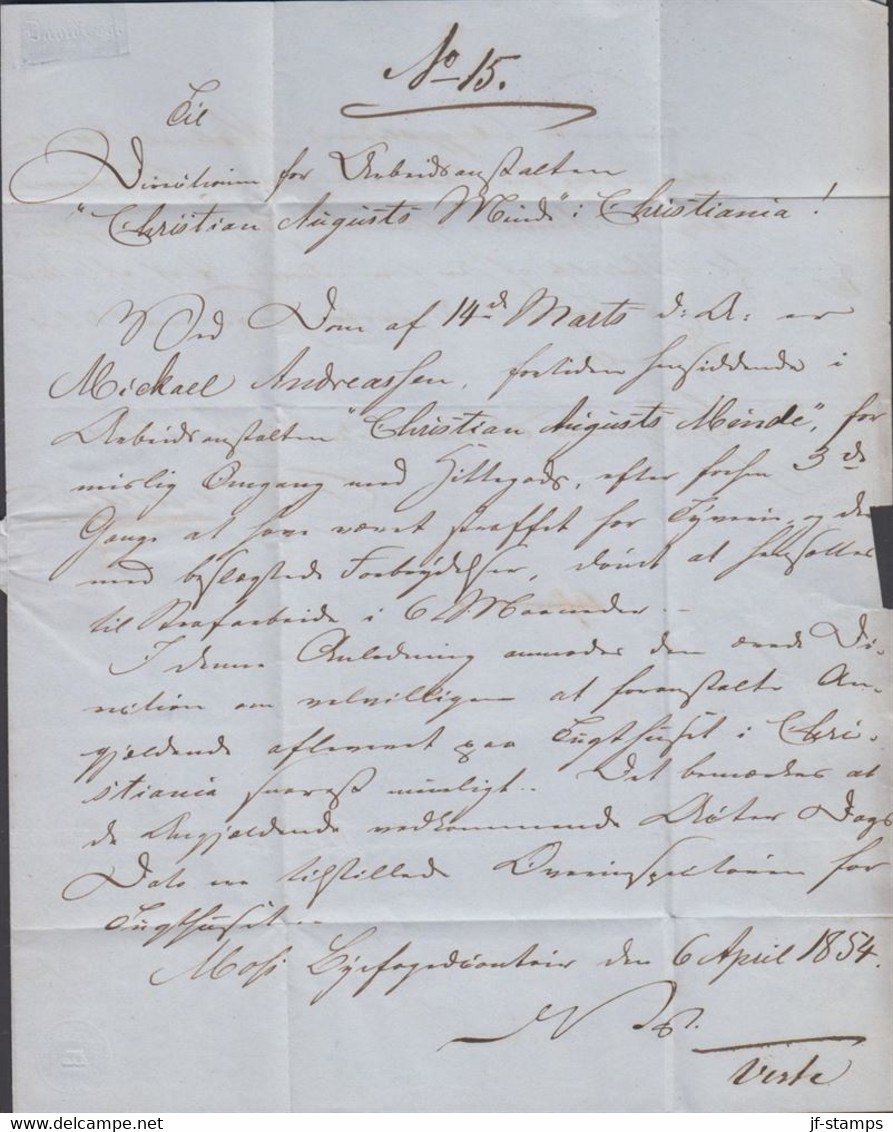 No 15.
Til
Directionen for Arbeidsanstalten
"Christian Augusts Minde" i Christiania!
Ved Dom af 14de Marts d: A: er
Mickael Andreassen, fortiden hensiddende i
Arbeidsanstalten "Christian Augusts Minde", for
mislig Omgang med Hittegods, efter forhen 3de
Gange at have været straffet for Tyveri og der-
med beslægtede Forbrydelser, dømt at hensættes
til Strafarbeide i 6 Maaneder. –
I denne Anledning anmodes den ærede Di-
rection om velvilligen at foranstalte An-
gjældende afleveret paa Tugthuset i Chri-
stiania snarest muligt. Det bemærkes at
de Angjældende vedkommende Acter Dags
Dato ere tilstillede Overinspectionen for
Tugthuset.
Moss Byfogedcontoir den 6 April 1854.
Vest
jf-stamps